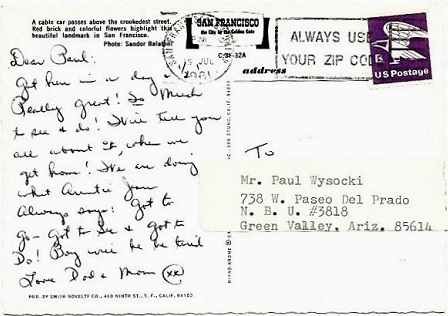 A cable car passes above the crookedest street.
Red brick and colorful flowers highlight this
beautiful landmark in San Francisco.
Photo: Sandor Balatoni
SAN FRANCISCO
the City by the Golden Gate
C-SF-32A
address
JUL
1981
ALWAYS USE
YOUR ZIP CODE
US Postage
Dear Paul:
Got here in a day -
Really great! So Much
to see & do! We'll tell you
all about it, when we
get home! We are doing
what Auntie Jan
Always says: Got to
go - Got to See & Got to
Do! Boy will he be tired
Love Dad & Mom (xx)
To
Mr. Paul Wysocki
738 W. Paseo Del Prado
N. B. U. #3818
Green Valley, Ariz. 85614
PUB. BY SMITH NOVELTY CO., 460 NINTH ST., S. F., CALIF. 94103